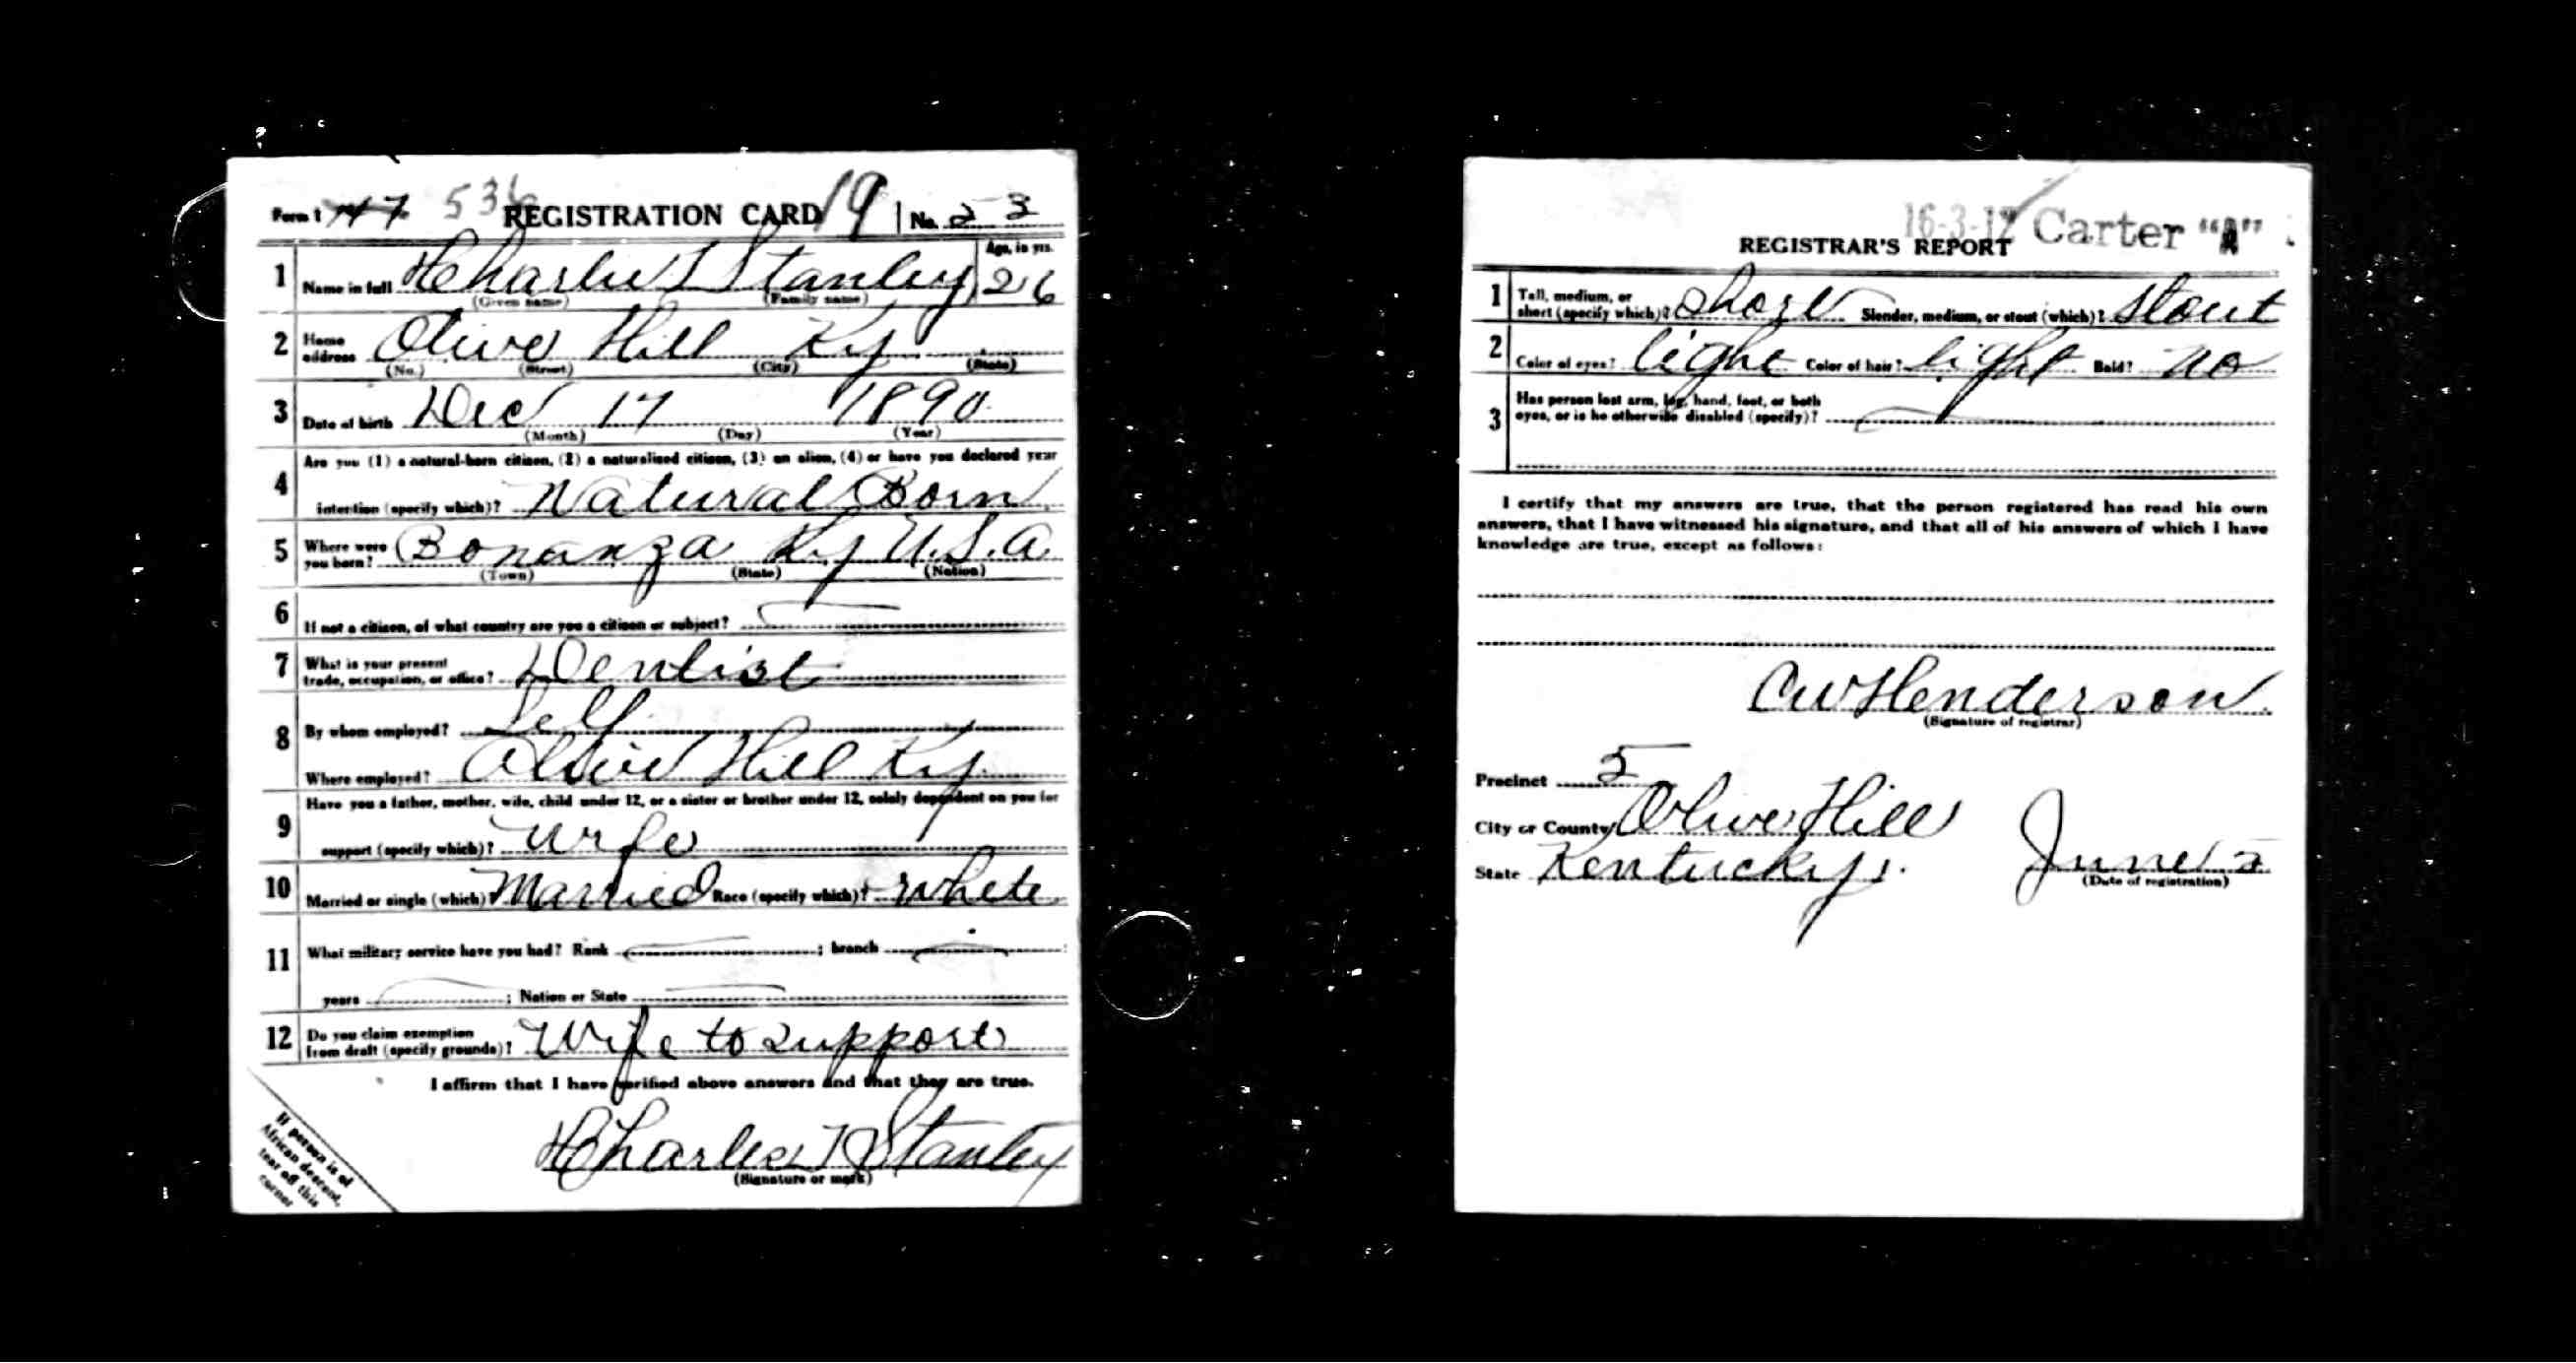 Form 1 747 536 REGISTRATION CARD 19 No. 23
1 Name in full Charlie T Stanley Age, in yrs. 26
(Given name) (Family name)
2 Home address Olive Hill Ky
(No.) (Street) (City) (State)
3 Date of birth Dec 17 1890
(Month) (Day) (Year)
4 Are you (1) a natural-born citizen, (2) a naturalized citizen, (3) an alien, (4) or have you declared your
intention (specify which)? Natural Born
5 Where were you born? Bonanza Ky U.S.A
(Town) (State) (Nation)
6 If not a citizen, of what country are you a citizen or subject?
7 What is your present
trade, occupation, or office? Dentist
8 By whom employed? Self
Where employed? Olive Hill Ky
9 Have you a father, mother, wife, child under 12, or a sister or brother under 12, solely dependent on you for
support (specify which)? Wife
10 Married or single (which)? Married Race (specify which)? White
11 What military service have you had? Rank ; branch
years ; Nation or State
12 Do you claim exemption
from draft (specify grounds)? Wife to support
I affirm that I have verified above answers and that they are true.
Charlie T Stanley
(Signature or mark)
If person is of
African descent,
tear off this
corner
16-3-17 Carter "A"
REGISTRAR'S REPORT
1 Tall, medium, or
short (specify which)? Short Slender, medium, or stout (which)? Stout
2 Color of eyes? light Color of hair? light Bald? no
3 Has person lost arm, leg, hand, foot, or both
eyes, or is he otherwise disabled (specify)?
I certify that my answers are true, that the person registered has read his own
answers, that I have witnessed his signature, and that all of his answers of which I have
knowledge are true, except as follows:
C W Henderson
(Signature of registrar)
Precinct 5
City or County Olive Hill
State Kentucky June 5
(Date of registration)